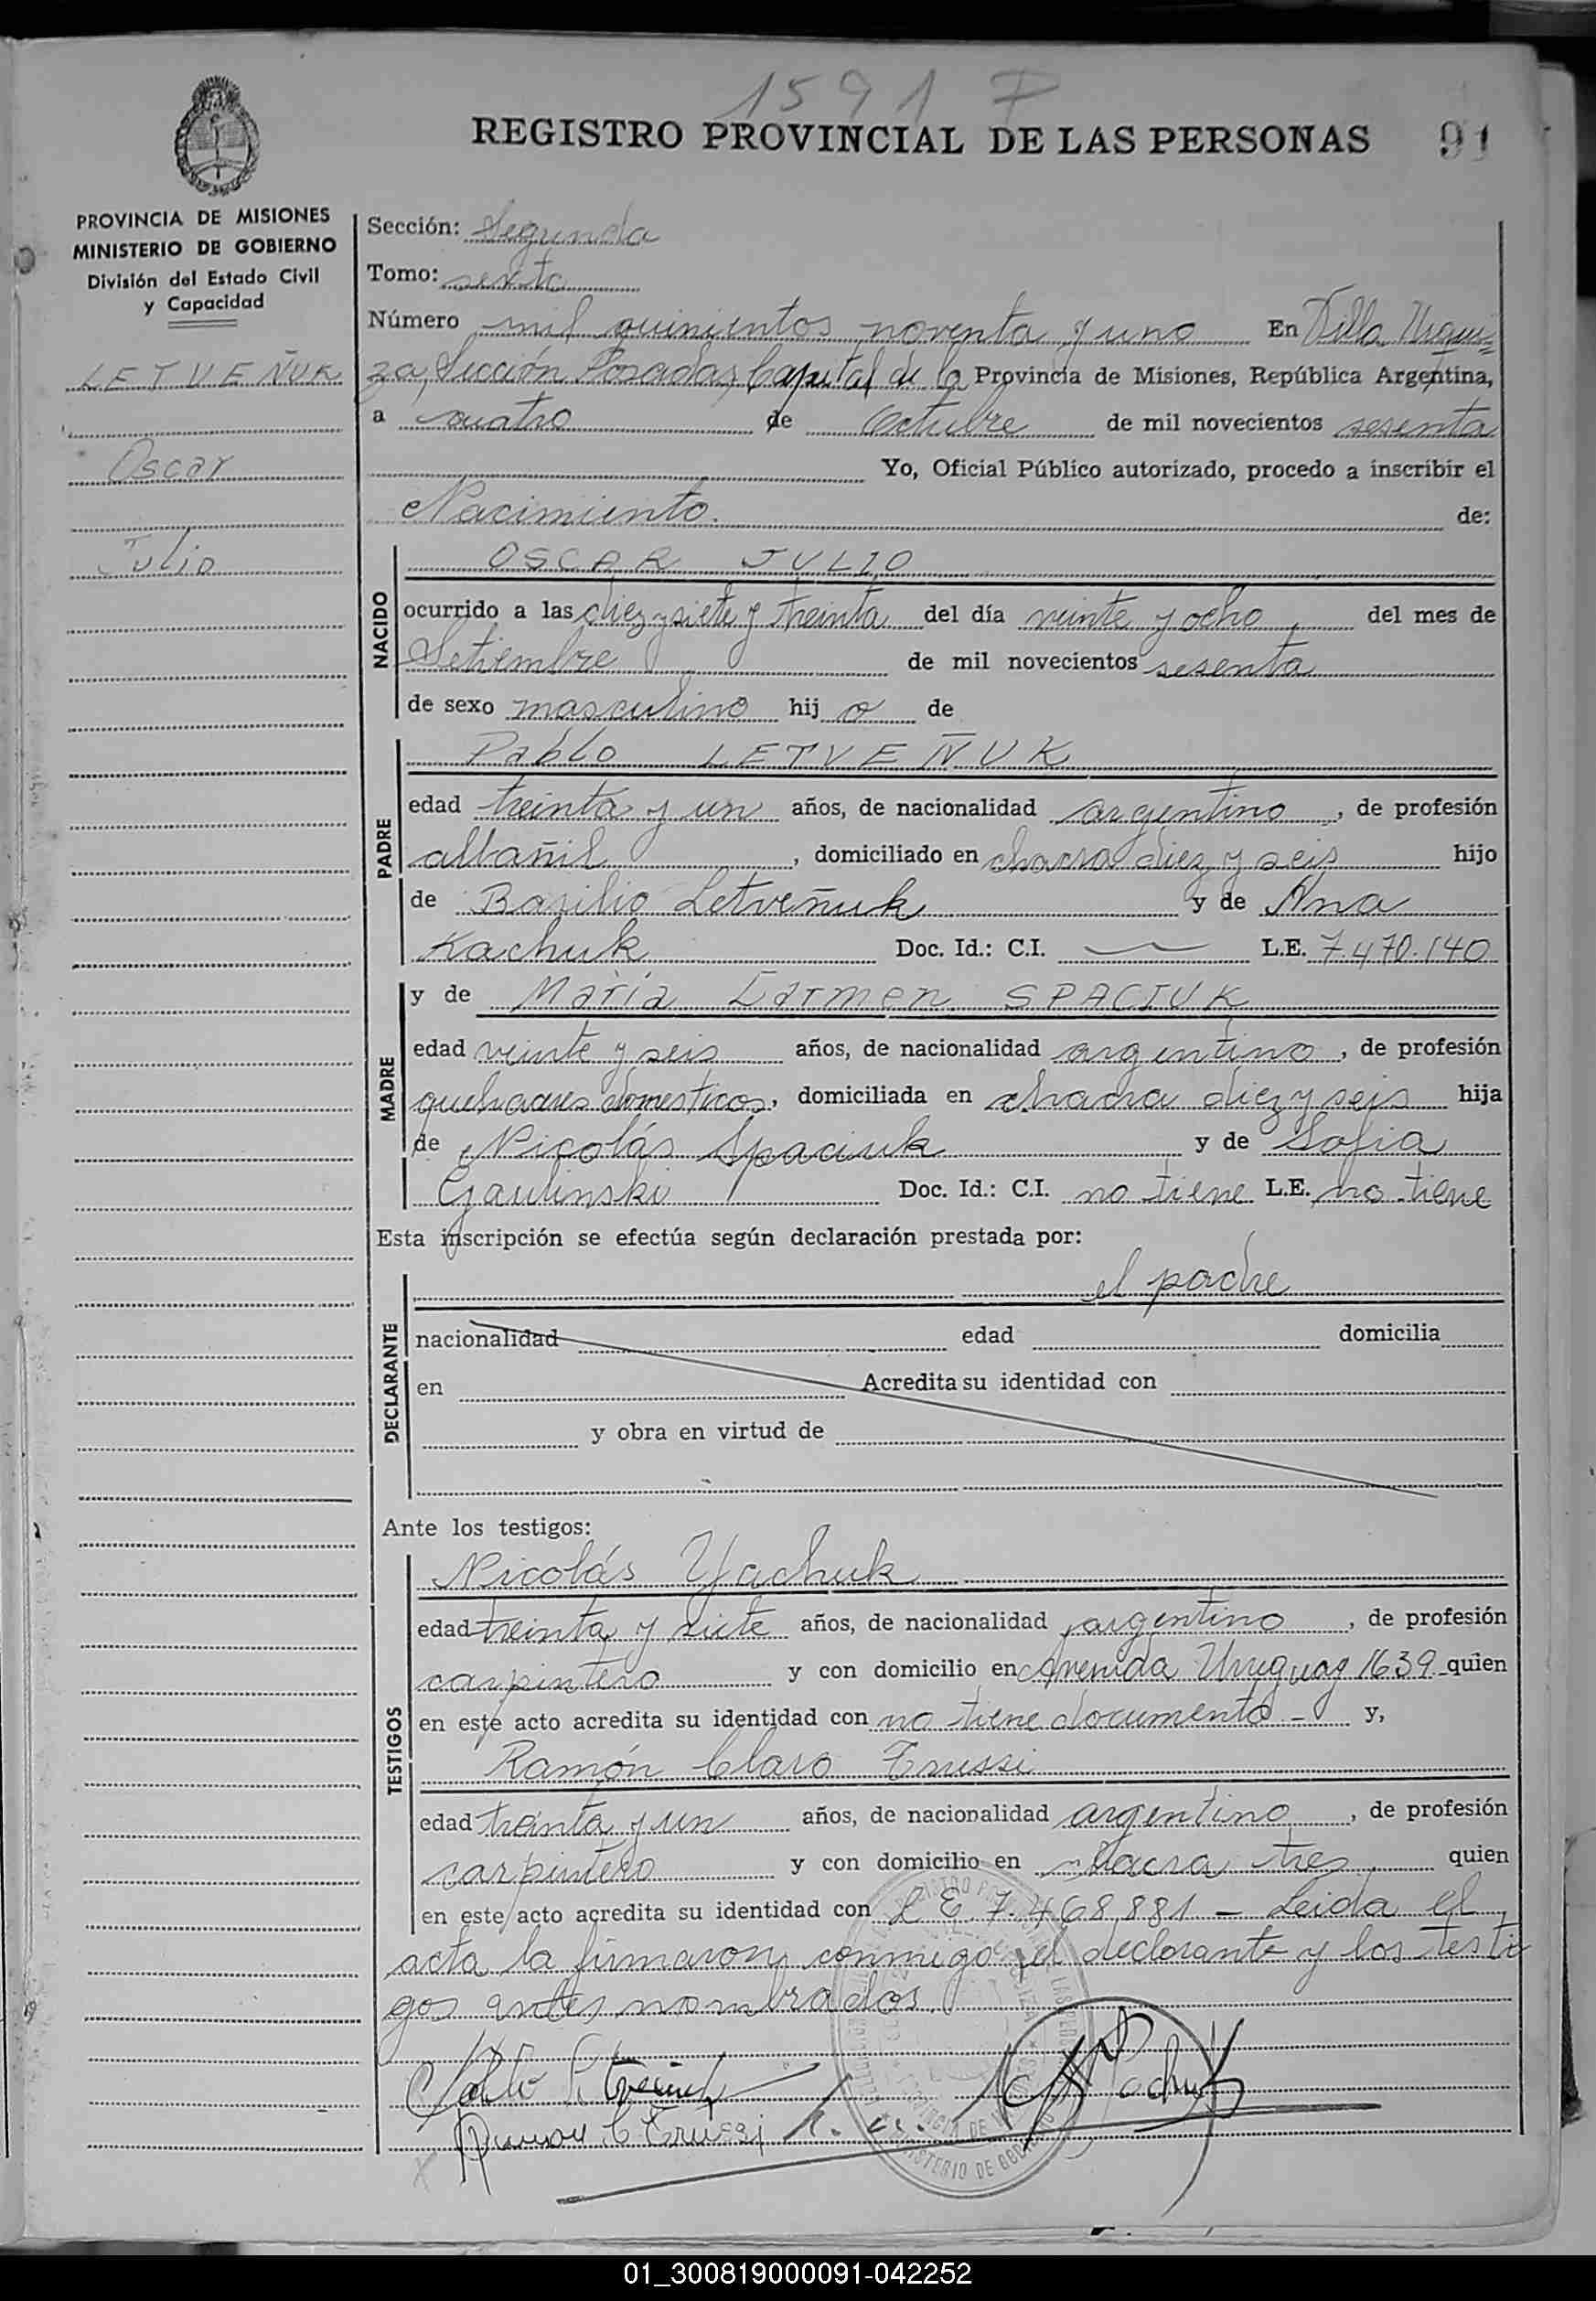 1591 7
REGISTRO PROVINCIAL DE LAS PERSONAS 91
PROVINCIA DE MISIONES
MINISTERIO DE GOBIERNO
División del Estado Civil
y Capacidad
LETVEÑUK
Oscar
Julio
Sección: Segunda
Tomo: sexto
Número mil quinientos noventa y uno En Villa Urqui=
za, Sección Posadas, Capital de la Provincia de Misiones, República Argentina,
a cuatro de Octubre de mil novecientos sesenta
Yo, Oficial Público autorizado, procedo a inscribir el
Nacimiento. de:
NACIDO
OSCAR JULIO
ocurrido a las diez y siete y treinta del día veinte y ocho, del mes de
Setiembre de mil novecientos sesenta
de sexo masculino hij o de
PADRE
Pablo LETVEÑUK
edad treinta y un años, de nacionalidad argentino, de profesión
albañil, domiciliado en chacra diez y seis hijo
de Basilio Letveñuk y de Ana
Kachuk Doc. Id.: C.I. — L.E. 7.470.140
MADRE
y de María Carmen SPACIUK
edad veinte y seis años, de nacionalidad argentino, de profesión
quehaceres domesticos, domiciliada en chacra diez y seis hija
de Nicolás Spaciuk y de Sofia
Doc. Id.: C.I. no tiene L.E. no tiene
Esta inscripción se efectúa según declaración prestada por:
el padre
DECLARANTE
nacionalidad edad domicilia
en Acredita su identidad con
y obra en virtud de
Ante los testigos:
TESTIGOS
Nicolás Yachuk
edad treinta y siete años, de nacionalidad argentino, de profesión
carpintero y con domicilio en Avenida Uruguay 1639 quien
en este acto acredita su identidad con no tiene documento - y,
Ramón Claro Trussi
edad treinta y un años, de nacionalidad argentino, de profesión
carpintero y con domicilio en chacra tres quien
en este acto acredita su identidad con L E. 7.468.881 - Leida el
acta la firmaron conmigo el declarante y los testi
gos antes nombrados.
Ramon C Trussi
01_300819000091-042252